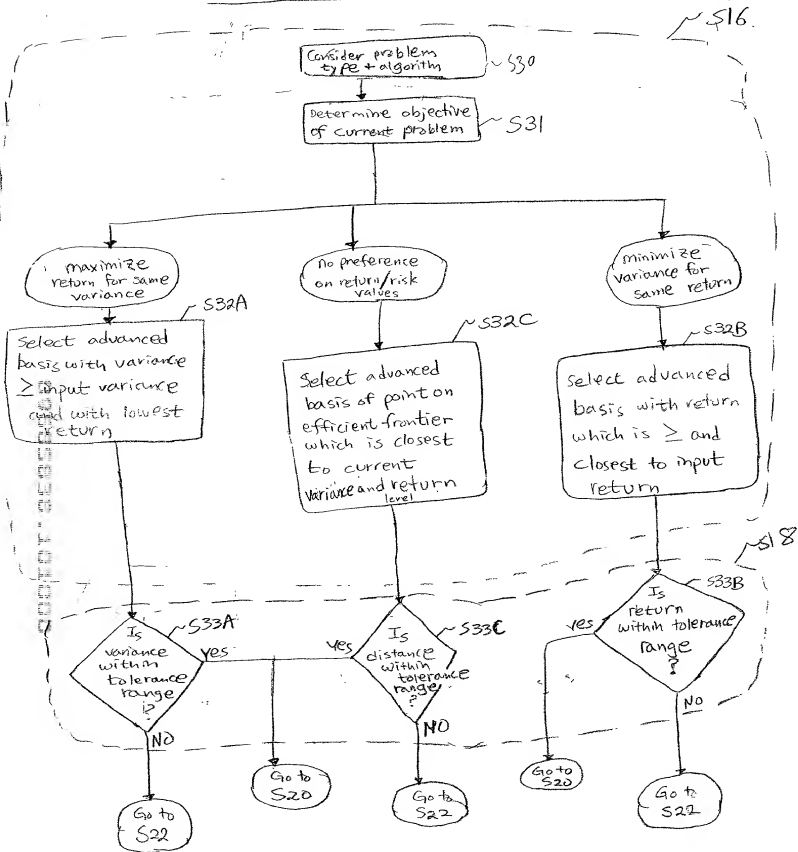 S16.
Consider problem
type + algorithm
S30
Determine objective
of current problem
S31
maximize
return for same
variance
No preference
on return/risk
values
minimize
variance for
same return
S32A
Select advanced
basis with variance
≥ input variance
and with lowest
return
S32C
Select advanced
basis of point on
efficient frontier
which is closest
to current
variance and return
level
S32B
Select advanced
basis with return
which is ≥ and
closest to input
return
S18
S33A
Is
variance
within
tolerance
range
?
yes
NO
S33C
Is
distance
within
tolerance
range
?
yes
NO
S33B
Is
return
within tolerance
range
?
yes
NO
Go to
S22
Go to
S20
Go to
S22
Go to
S20
Go to
S22